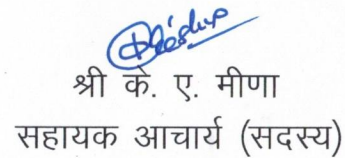 श्री के. ए. मीणा
सहायक आचार्य (सदस्य)